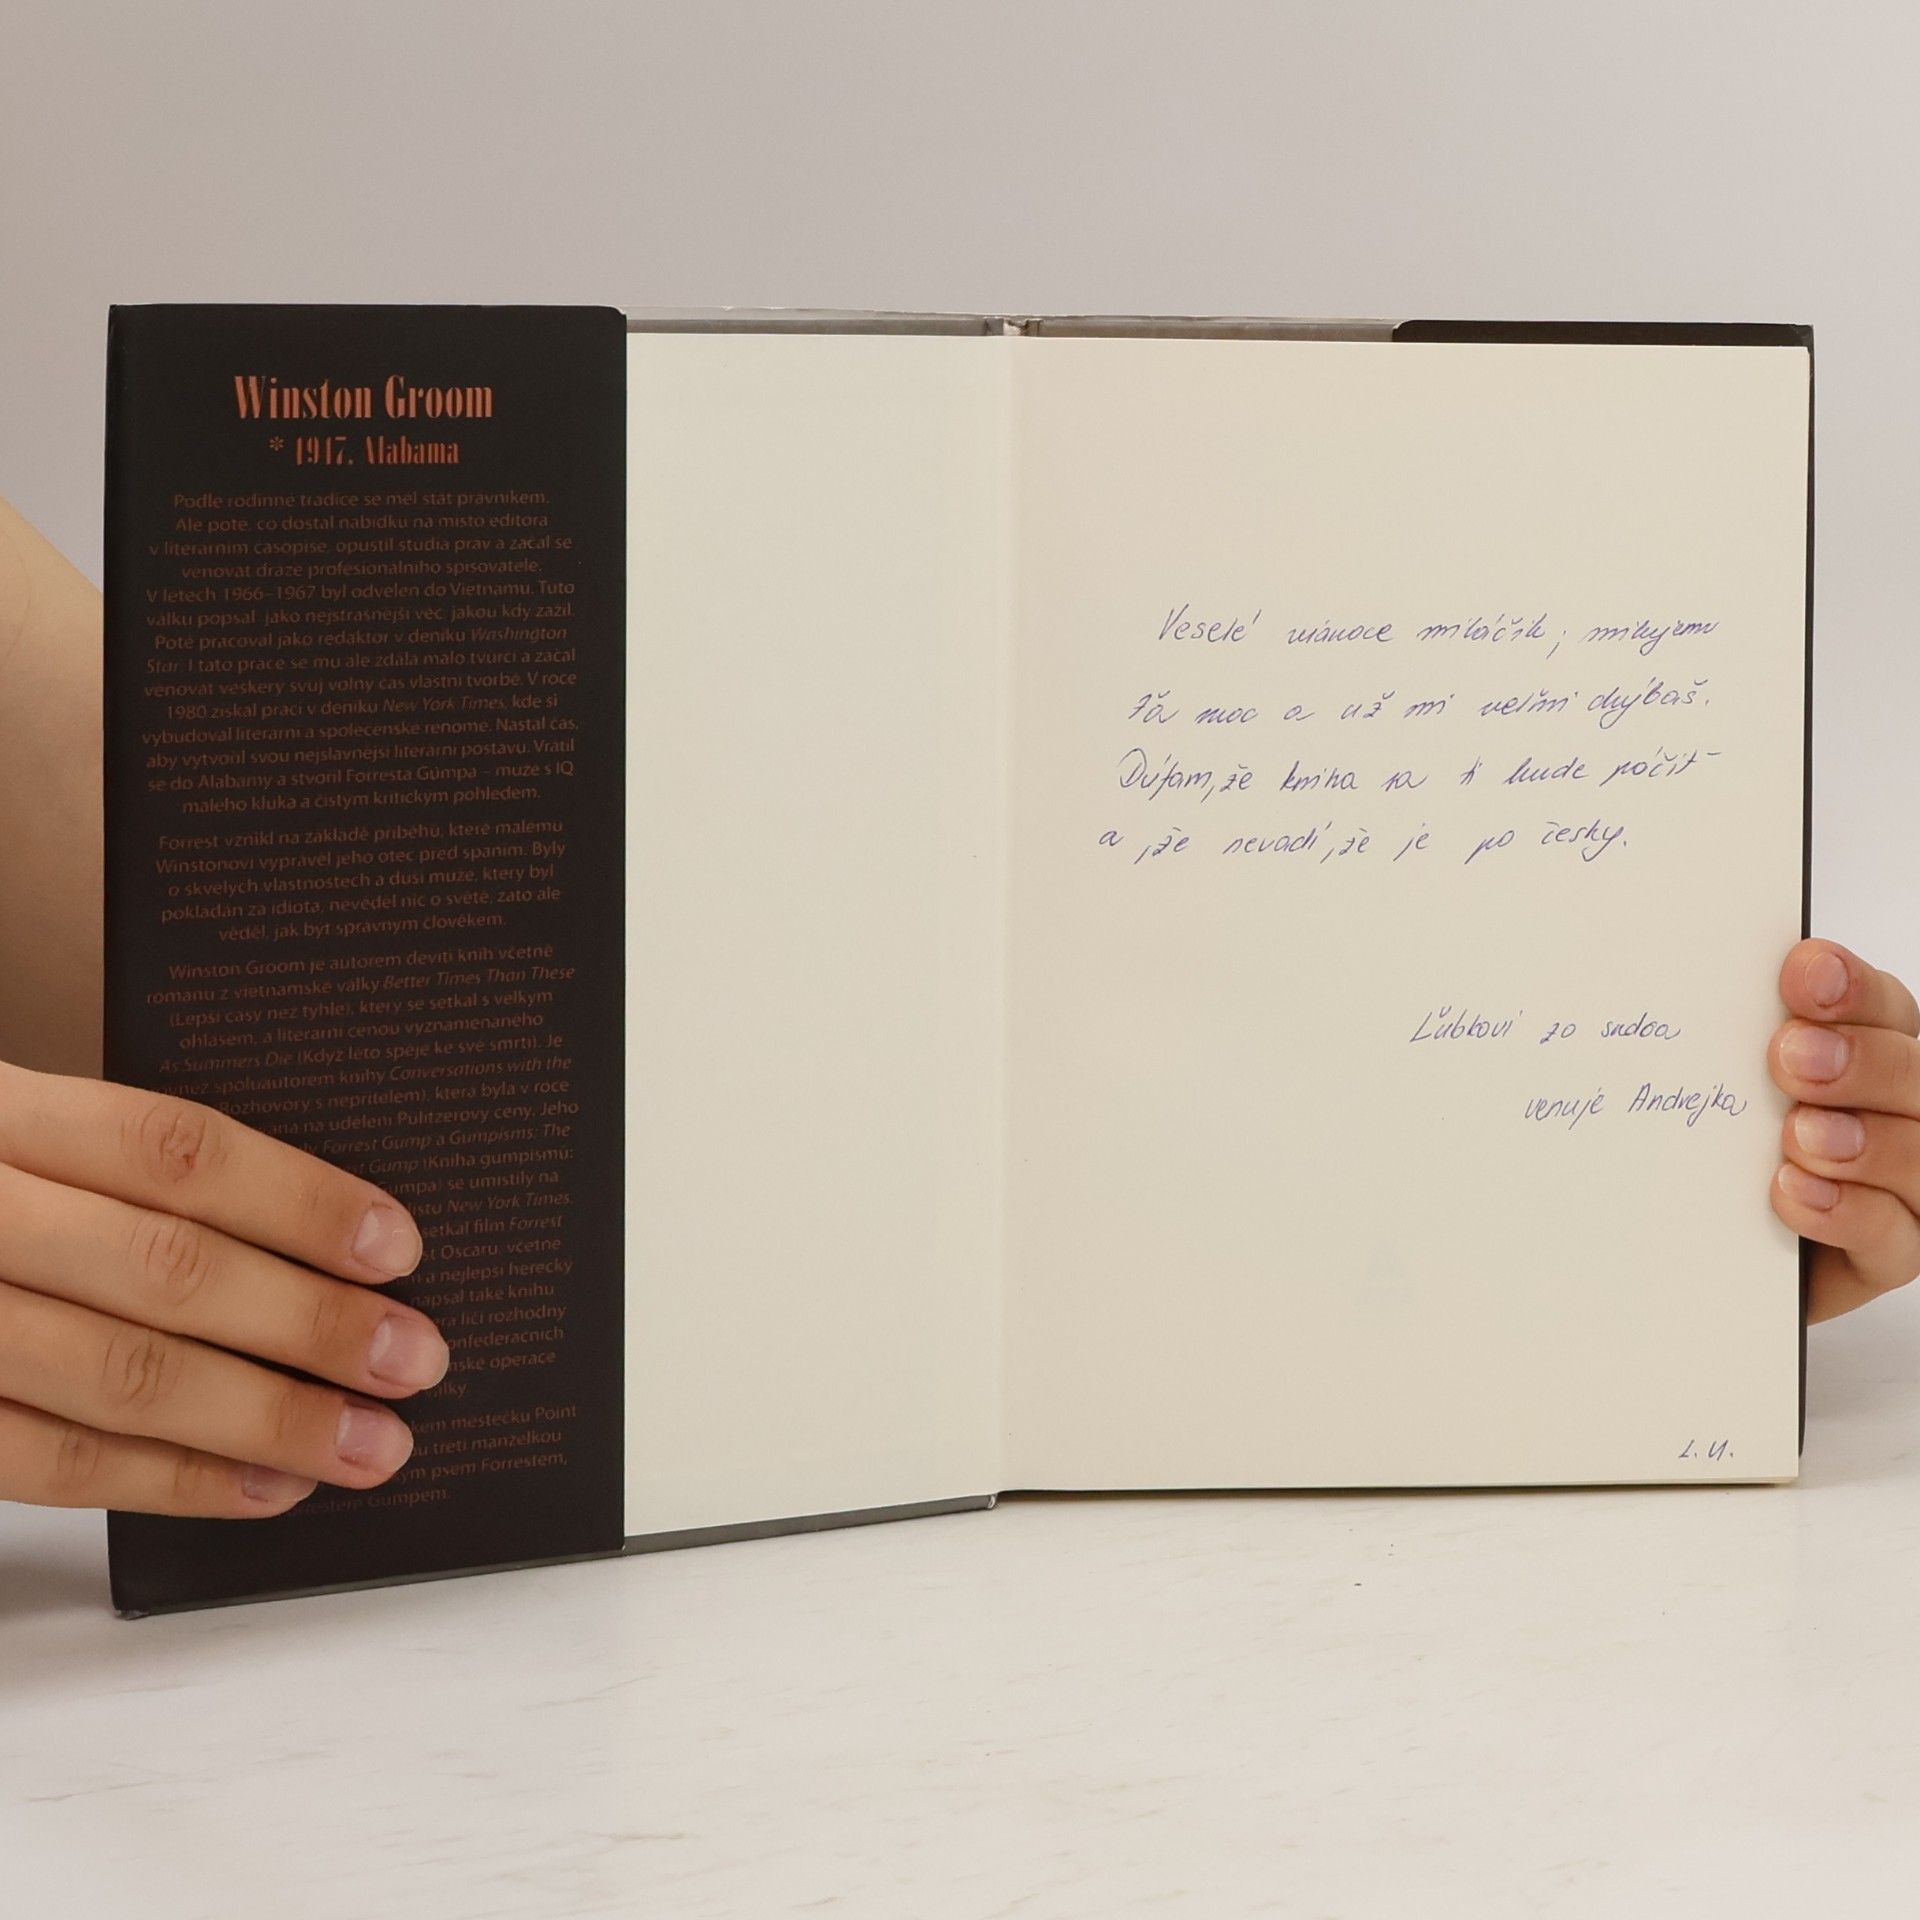 Winston Groom
* 1947, Alabama
Podle rodinné tradice se měl stát právníkem.
Ale poté, co dostal nabídku na místo editora
v literárním časopise, opustil studia práv a začal se
věnovat dráze profesionálního spisovatele.
V letech 1966–1967 byl odvelen do Vietnamu. Tuto
válku popsal jako nejstrašnější věc, jakou kdy zažil.
Poté pracoval jako redaktor v deníku Washington
Star. I tato práce se mu ale zdála málo tvůrčí a začal
věnovat veškerý svůj volný čas vlastní tvorbě. V roce
1980 získal práci v deníku New York Times, kde si
vybudoval literární a společenské renomé. Nastal čas,
aby vytvořil svou nejslavnější literární postavu. Vrátil
se do Alabamy a stvořil Forresta Gumpa – muže s IQ
malého kluka a čistým kritickým pohledem.
Forrest vznikl na základě příběhů, které malému
Winstonovi vyprávěl jeho otec před spaním. Byly
o skvělých vlastnostech a duši muže, který byl
pokládán za idiota, nevěděl nic o světě, zato ale
věděl, jak být správným člověkem.
Winston Groom je autorem devíti knih včetně
románu z vietnamské války Better Times Than These
(Lepší časy než tyhle), který se setkal s velkým
ohlasem, a literární cenou vyznamenaného
As Summers Die (Když léto spěje ke své smrti). Je
spoluautorem knihy Conversations with the
(Rozhovory s nepřítelem), která byla v roce
na udělení Pulitzerovy ceny. Jeho
Forrest Gump a Gumpisms: The
Gump (Kniha gumpismů:
Gumpa) se umístily na
listu New York Times.
setkal film Forrest
Oscarů, včetně
a nejlepší herecký
napsal také knihu
líčí rozhodný
konfederačních
operace
války.
městečku Point
třetí manželkou
psem Forrestem,
Forrestem Gumpem.
Veselé vianoce miláčik; milujem
Ťa moc a už mi veľmi chýbaš.
Dúfam, že kniha sa ti bude páčiť
a ,že nevadí, že je po česky.
Ľubkovi zo srdca
venuje Andrejka
L. U.